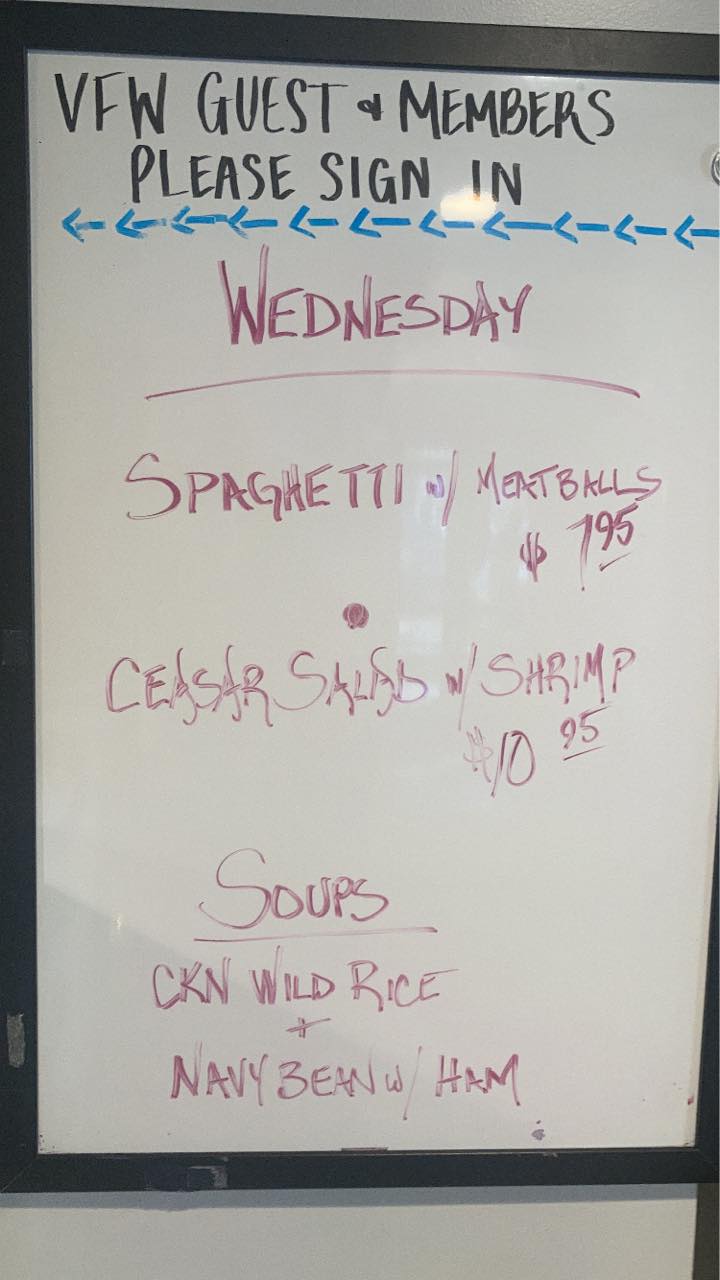 VFW GUEST & MEMBERS
PLEASE SIGN IN
WEDNESDAY
SPAGHETTI w/ MEATBALLS
$ 7.95
CEASAR SALAD w/ SHRIMP
$10 95
SOUPS
CKN WILD RICE
+
NAVY BEAN w/ HAM